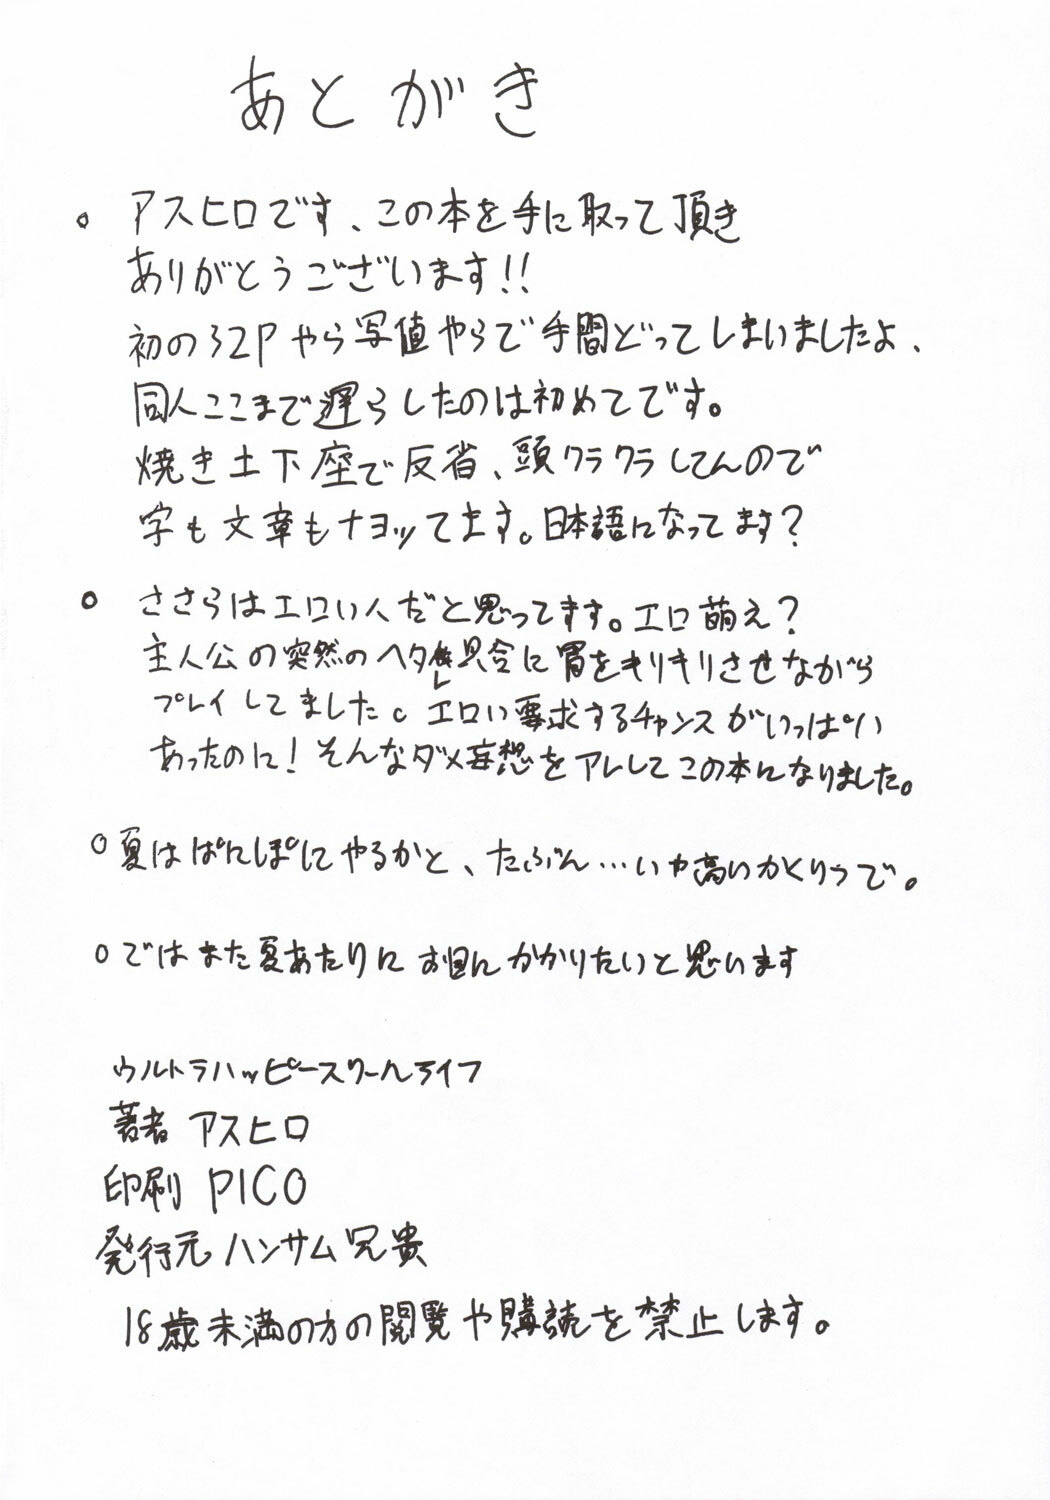 あとがき
。アスヒロです、この本を手に取って頂き
ありがとうございます!!
初の32Pやら写植やらで手間どってしまいましたよ、
同人ここまで遅らしたのは初めてです。
焼き土下座で反省、頭クラクラしてんので
字も文章もナヨッてます。日本語になってます?
。ささらはエロい人だと思ってます。エロ萌え?
主人公の突然のヘタレ具合に胃をキリキリさせながら
プレイしてました。エロい要求するチャンスがいっぱい
あったのに!そんなダメ妄想をアレしてこの本になりました。
○夏はぱにぽにやるかと、たぶん…いや高いかくりつで。
○ではまた夏あたりにお目にかかりたいと思います
ウルトラハッピースクールライフ
著者 アスヒロ
印刷 PICO
発行元 ハンサム兄貴
18歳未満の方の閲覧や購読を禁止します。